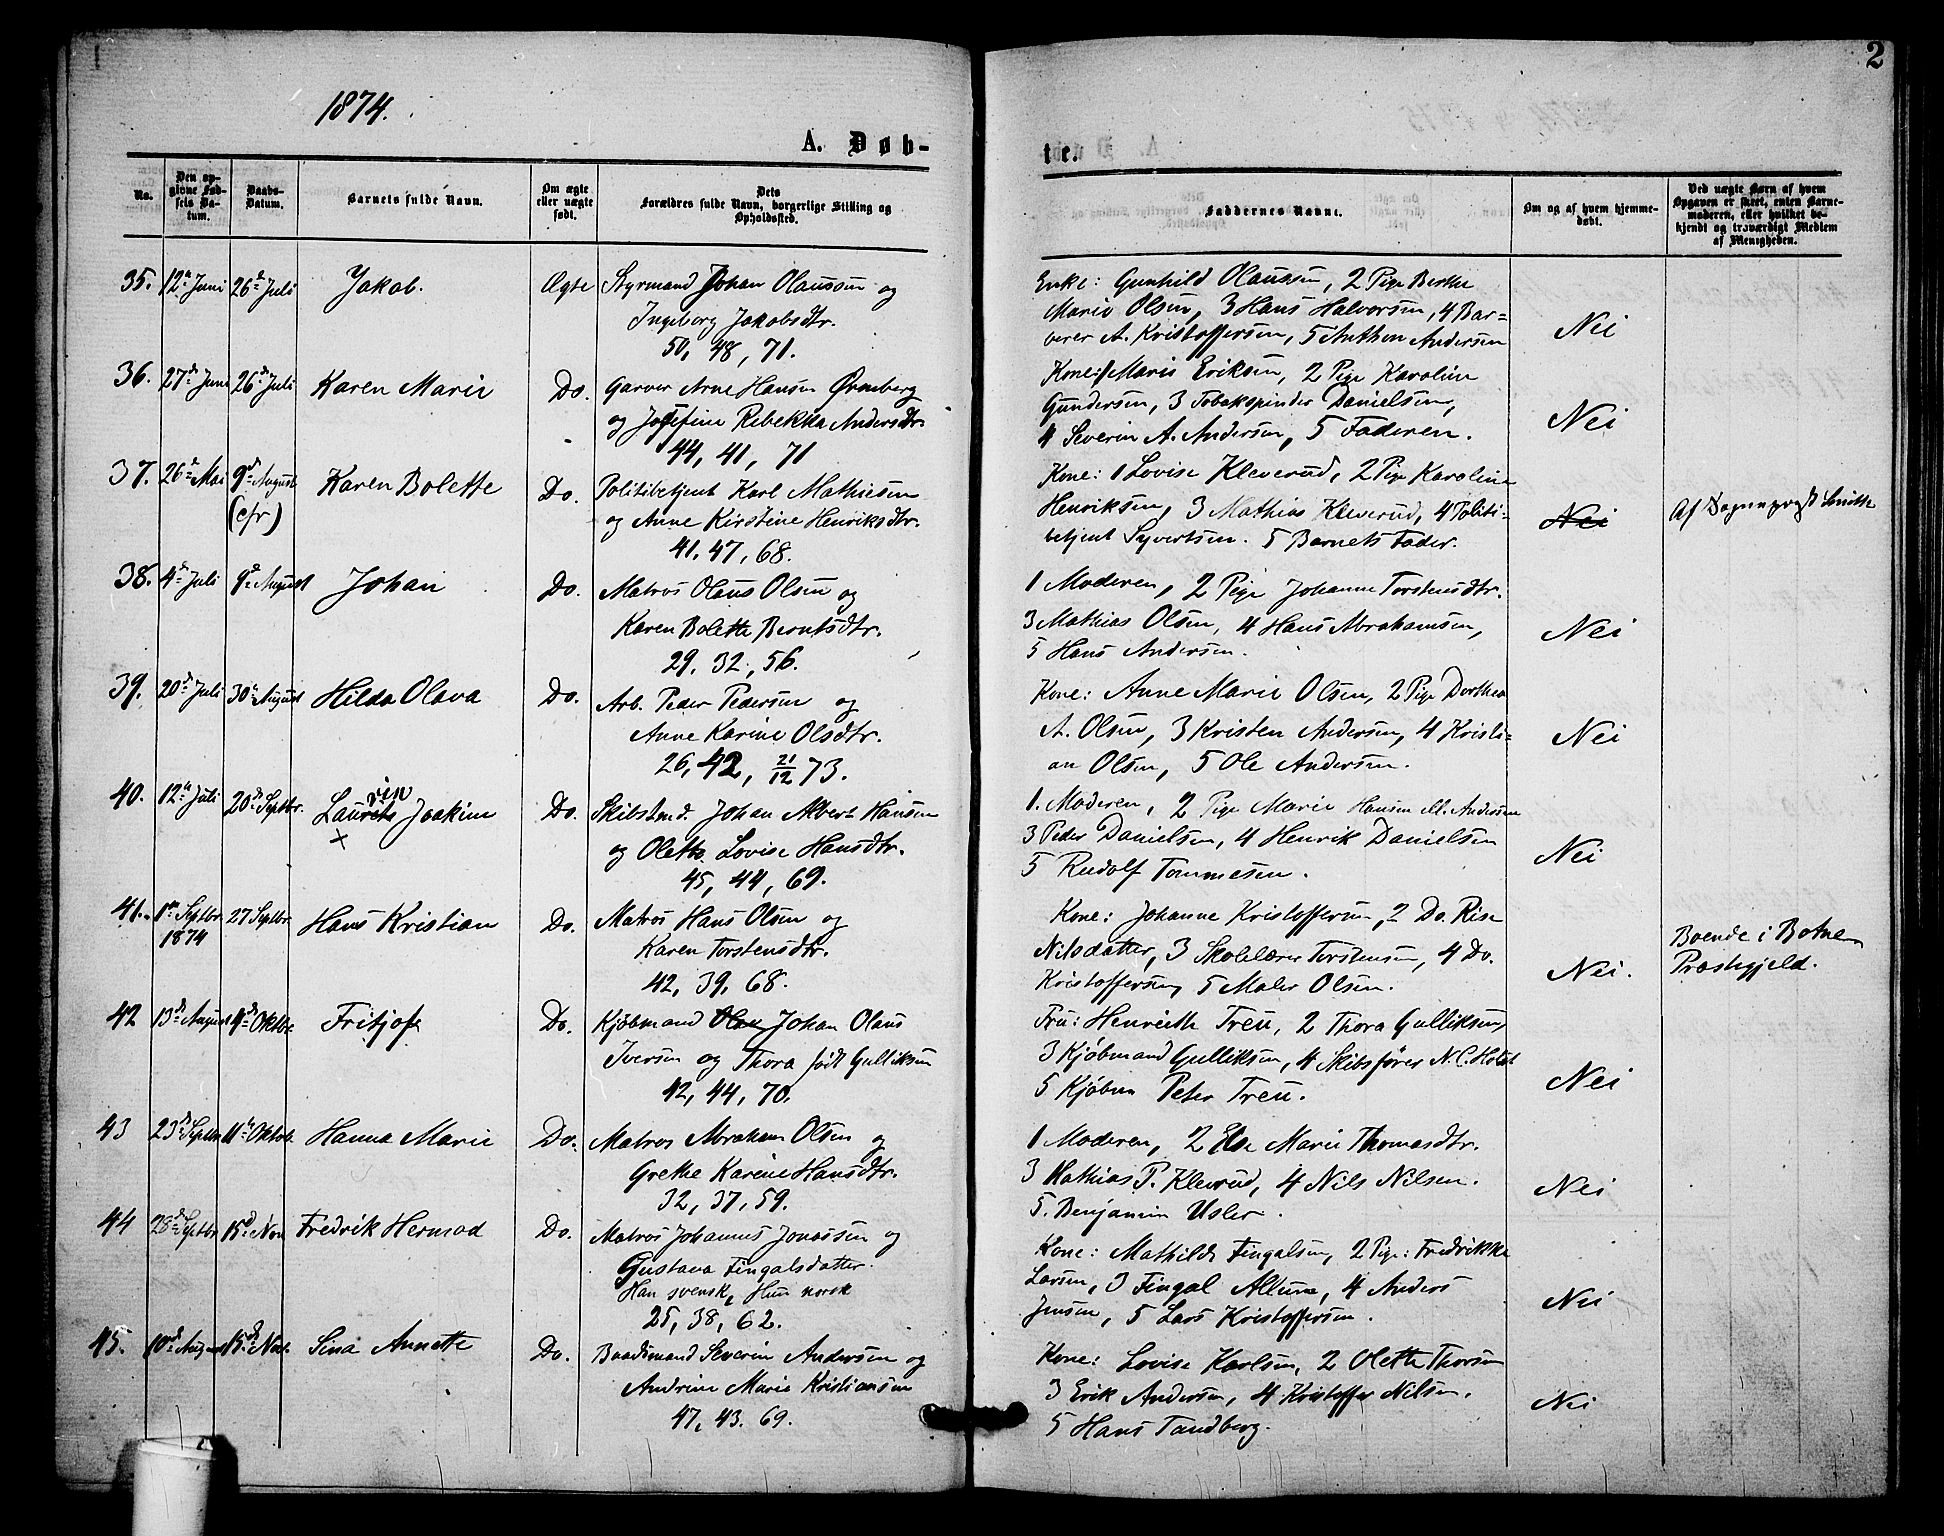 1
2
1874.
A. Døb-
te.
No.
Den opgivne Fødsels Datum.
Daabs-Datum.
Barnets fulde Navn.
Om ægte eller uægte født.
Dets Forældres fulde Navn, borgerlige Stilling og Opholdssted.
Faddernes Navne.
Om og af hvem hjemmedøbt.
Ved uægte Børn af hvem Opgaven er skeet, enten Barnemoderen, eller hvilket bekjendt og troværdigt Medlem af Menigheden.
35. 12te Juni 26de Juli Jakob. Ægte Styrmand Johan Olaussen og
Ingeborg Jakobsdtr.
50, 48, 71.
Enke: Gunhild Olaussen, 2 Pige Berthe
Marie Olsen, 3 Hans Halvorsen, 4 Bar-
verer A. Kristoffersen, 5 Anthon Andersen
Nei
36. 27de Juni 26de Juli Karen Marie Do. Garver Arne Hansen Ørneberg
og Josefine Rebekka Andersdtr.
44, 41, 71
Kone: Maris Eriksen, 2 Pige Karoline
Gundersen, 3 Tobakspinder Danielsen,
4 Severin A. Andersen, 5 Faderen.
Nei
37. 26de Mai 9de August Karen Bolette Do. Politibetjent Karl Mathiesen
(cfr)
og Anne Kirstine Henriksdtr.
41, 47, 68.
Kone: 1 Lovise Kleverud, 2 Pige Karoline
Henriksen, 3 Mathias Kleverud, 4 Politi-
betjent Syvertsen. 5 Barnets Fader.
Nei
Af Sognepræst Smith
38. 4de Juli 9de August Johan Do. Matros Olaus Olsen og
Karen Bolette Berntsdtr.
29, 32, 56.
1 Moderen, 2 Pige Johanne Torstensdtr.
3 Mathias Olsen, 4 Hans Abrahamsen,
5 Hans Andersen.
Nei
39. 20de Juli 30te August Hilda Olava Do. Arb. Peder Pedersen og
Anne Karine Olsdtr.
26, 42, 21/12 73.
Kone: Anne Marie Olsen, 2 Pige Dorthea
A. Olsen, 3 Kristen Andersen, 4 Kristi-
an Olsen, 5 Ole Andersen.
Nei
40. 12te Juli 20de Septbr. Laurits Joakim Do. Skibstmd. Johan Albert Hansen
og Olette Lovise Hansdtr.
45, 44, 69.
1. Moderen, 2 Pige Marie Hansen ell. Andersen
3 Peder Danielsen, 4 Henrik Danielsen
5 Rudolf Tommesen.
Nei
41. 1ste Septbr. 1874 27 Septbr. Hans Kristian Do. Matros Hans Olsen og
Karen Torstensdtr.
42, 39, 68.
Kone: Johanne Kristoffersen, 2 Do. Rise
Nilsdatter, 3 Skolelærer Torstensen, 4 Do.
Kristoffersen, 5 Maler Olsen.
Nei.
Boende i Botne
Præstegjeld.
42 13de August 4de Oktbr Fritjof Do. Kjøbmand Olav Johan Olaus
Iversen og Thora født Gulliksen
42, 44, 70.
Fru: Henriette Treu, 2 Thora Gulliksen,
3 Kjøbmand Gulliksen, 4 Skibsfører N. C. Holst
5 Kjøbm Peter Treu.
Nei
43 23de Septbr 11te Oktob. Hanna Marie Do. Matros Abraham Olsen og
Grethe Karine Hansdtr.
32, 37, 59.
1 Moderen, 2 Else Marie Thomasdtr.
3 Mathias P. Kleverud, 4 Nils Nilsen.
5. Benjamin Usler.
Nei
44 28de Septbr 15de Nov Fredrik Hermod Do. Matros Johannes Jonassen og
Gustava Fingalsdatter.
Han svensk, Hun norsk
25, 38, 62.
Kone: Mathilde Fingalsen, 2 Pige: Fredrikke
Larsen, 3 Fingal Allum, 4 Anders
Jensen, 5 Lars Kristoffersen.
Nei
45. 10de August 15de Nov. Sina Annette Do. Baadsmand Severin Andersen og
Andrine Marie Kristiansen
47, 43. 69.
Kone: Lovise Karlsen, 2 Olette Thorsen
3 Erik Andersen, 4 Kristoffer Nilsen.
5 Hans Tandberg.
Nei